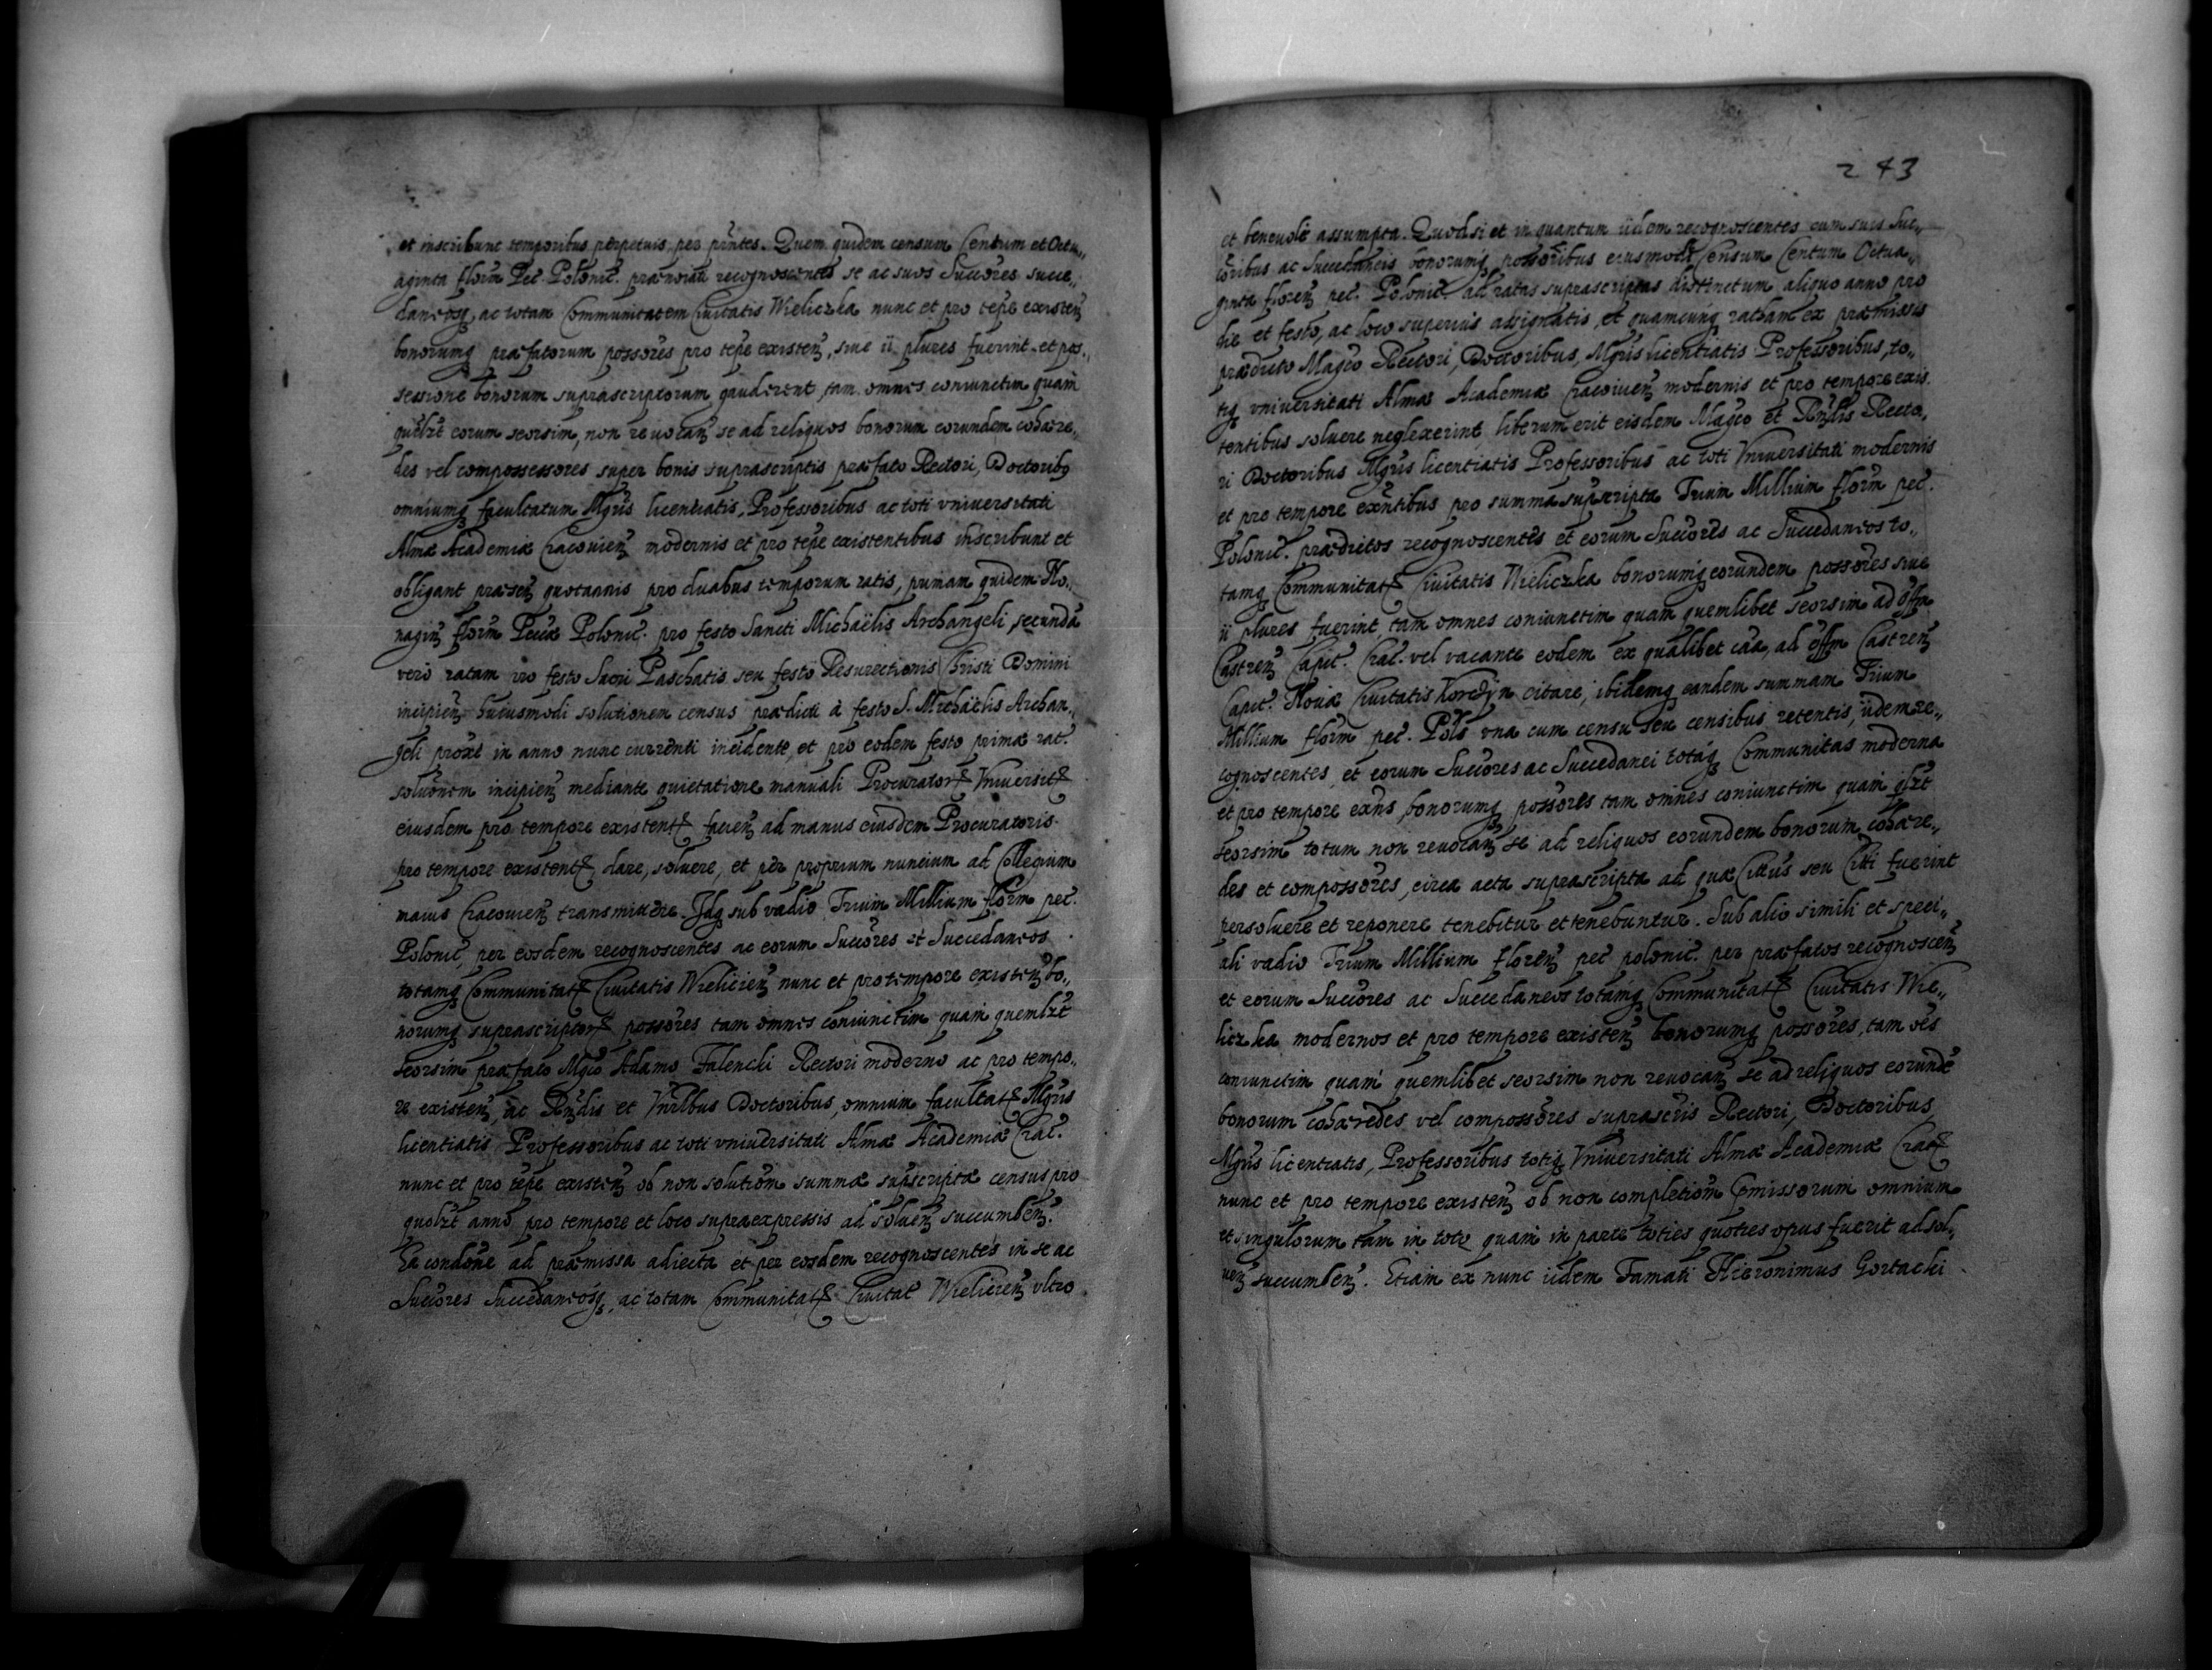 et inscribunt temporibus perpetuis per pñtes. Quem quidem censum Centum et Octu„
aginta florm̃ Pec̃ Polonic̃. prænotati recognoscentes se ac suos Succõres succe„
daneosq, ac totam Communitatem Ciuitatis Wieliczka nunc et pro tẽpe existeñ
bonorumq præfatorum possõres pro tẽpe existeñ, siue ii plures fuerint et pos„
sessione bonorum suprascriptorum gauderent, tam omnes coniunctim quam
quẽlzt eorum seorsim, non reuocañ se ad reliquos bonorum eorundem cohære„
des vel compossessores super bonis suprascriptis præfato Rectori, Doctoribq
omniumq facultatum Mgr̃is licentiatis, Professoribus ac toti vniuersitati
Almæ Academiæ Cracouieñ modernis et pro tẽpe existentibus inscribunt et
obligant præseñ quotannis pro duabus temporum ratis, primam quidem No„
nagiñ florm̃ Pecũæ Polonic̃. pro festo Sancti Michaëlis Archangeli, secundã
verò ratam pro festo Sacri Paschatis seu festo Resurectionis Christi Domini
incipieñ huiusmodi solutionem census prædicti à festo S. Michaëlis Archan„
geli proxẽ in anno nunc currenti incidente, et pro eodem festo primæ rat̃.
solũonem incipieñ mediante quietatione manuali Procurator Vniuersit
eiusdem pro tempore existent facieñ ad manus eiusdem Procuratoris
pro tempore existent, dare, soluere, et per proprium nuncium ad Collegium
maius Cracouieñ transmittere. Idq sub vadio Trium Millium florm̃ pec̃.
Polonic̃, per eosdem recognoscentes ac eorum Succõres et Succedaneos
totamq Communitat Ciuitatis Wielicieñ nunc et pro tempore existeñ bo„
norumq suprascriptor possõres tam omnes coniunctim quam quemlzt
seorsim præfato Mgco Adamo Falencki Rectori moderno ac pro tempo„
re existeñ, ac Rñdis et Vnr̃lbus Doctoribus, omnium facultat Mgr̃is
licentiatis Professoribus ac toti vniuersitati Almæ Academiæ Crac̃.
nunc et pro tẽpe existeñ ob non solutiõm summæ suprscriptæ census pro
quolzt anno pro tempore et loco supraexpressis ad solueñ succumbeñ.
Ea condõne ad præmissa adiecta et per eosdem recognoscentes in se ac
Succõres Succedaneosq, ac totam Communitat Ciuitat̃ Wielicieñ vltro
243
et beneuolè assumpta. Quodsi et in quantum iidem recognoscentes cum suis Suc„
cõribus ac Succedaneis bonorumq possõribus eiusmodi Censum Centum Octua„
ginta floreñ pec̃. Polonic̃. ad ratas suprascriptas distinctum aliquo anno pro
die et festo, ac loco superiùs assignatis, et quamcunq ratham ex præmissis
prædicto Magco Rectori, Doctoribus, Mgr̃is licentiatis Professoribus, to„
tiq vniuersitati Almæ Academiæ Cracouieñ modernis et pro tempore exis
tentibus soluere neglexerint liberum erit eisdem Magco et Rñdis Recto„
ri Doctoribus Mgr̃is licentiatis Professoribus ac toti Vniuersitati modernis
et pro tempore exñtibus pro summa supscripta Trium Millium florm̃ pec̃.
Polonic̃. prædictos recognoscentes et eorum Succõres ac Succedaneos to„
tamq Communitat Ciuitatis Wieliczka bonorumq eorundem possõres siue
ii plures fuerint, tam omnes coniunctim quam quemlibet seorsim ad offm
Castreñ Capit̃. Crac̃. vel vacante eodem ex qualibet cãa, ad offm Castreñ
Capit̃. Nouæ Ciuitatis Korcżyn citare, ibidemq eandem summam Trium
Millium florm̃ pec̃. Pols̃ vna cum censu seu censibus retentis, iidem re„
cognoscentes, et eorum Succõres ac Succedanei totaq Communitas moderna
et pro tempore exñs, bonorumq possõres tam omnes coniunctim quam qlzt
seorsim totum non reuocañ se ad reliquos eorundem bonorum cohære„
des et compossõres, circa acta suprascripta ad quæ Citt̃us seu Citt̃i fuerint
persoluere et reponere tenebitur et tenebuntur. Sub alio simili et speci„
ali vadio Trium Millium floreñ pec̃ polonic̃. per præfatos recognosceñ
et eorum Succõres ac Succedaneos totamq Communitat Ciuitatis Wie„
liczka modernos et pro tempore existeñ bonorumq possõres, tam oẽs
coniunctim quam quemlibet seorsim non reuocañ se ad reliquos eorundẽ
bonorum cohæredes vel compossõres suprascr̃is Rectori, Doctoribus,
Mgr̃is licentiatis, Professoribus totiq Vniuersitati Almæ Academiæ Crac
nunc et pro tempore existeñ ob non completiõm p̃missorum omnium
et singulorum tam in toto quam in parte toties quoties opus fuerit ad sol„
ueñ succumbeñ. Etiam ex nunc iidem Famati Hieronimus Gortacki